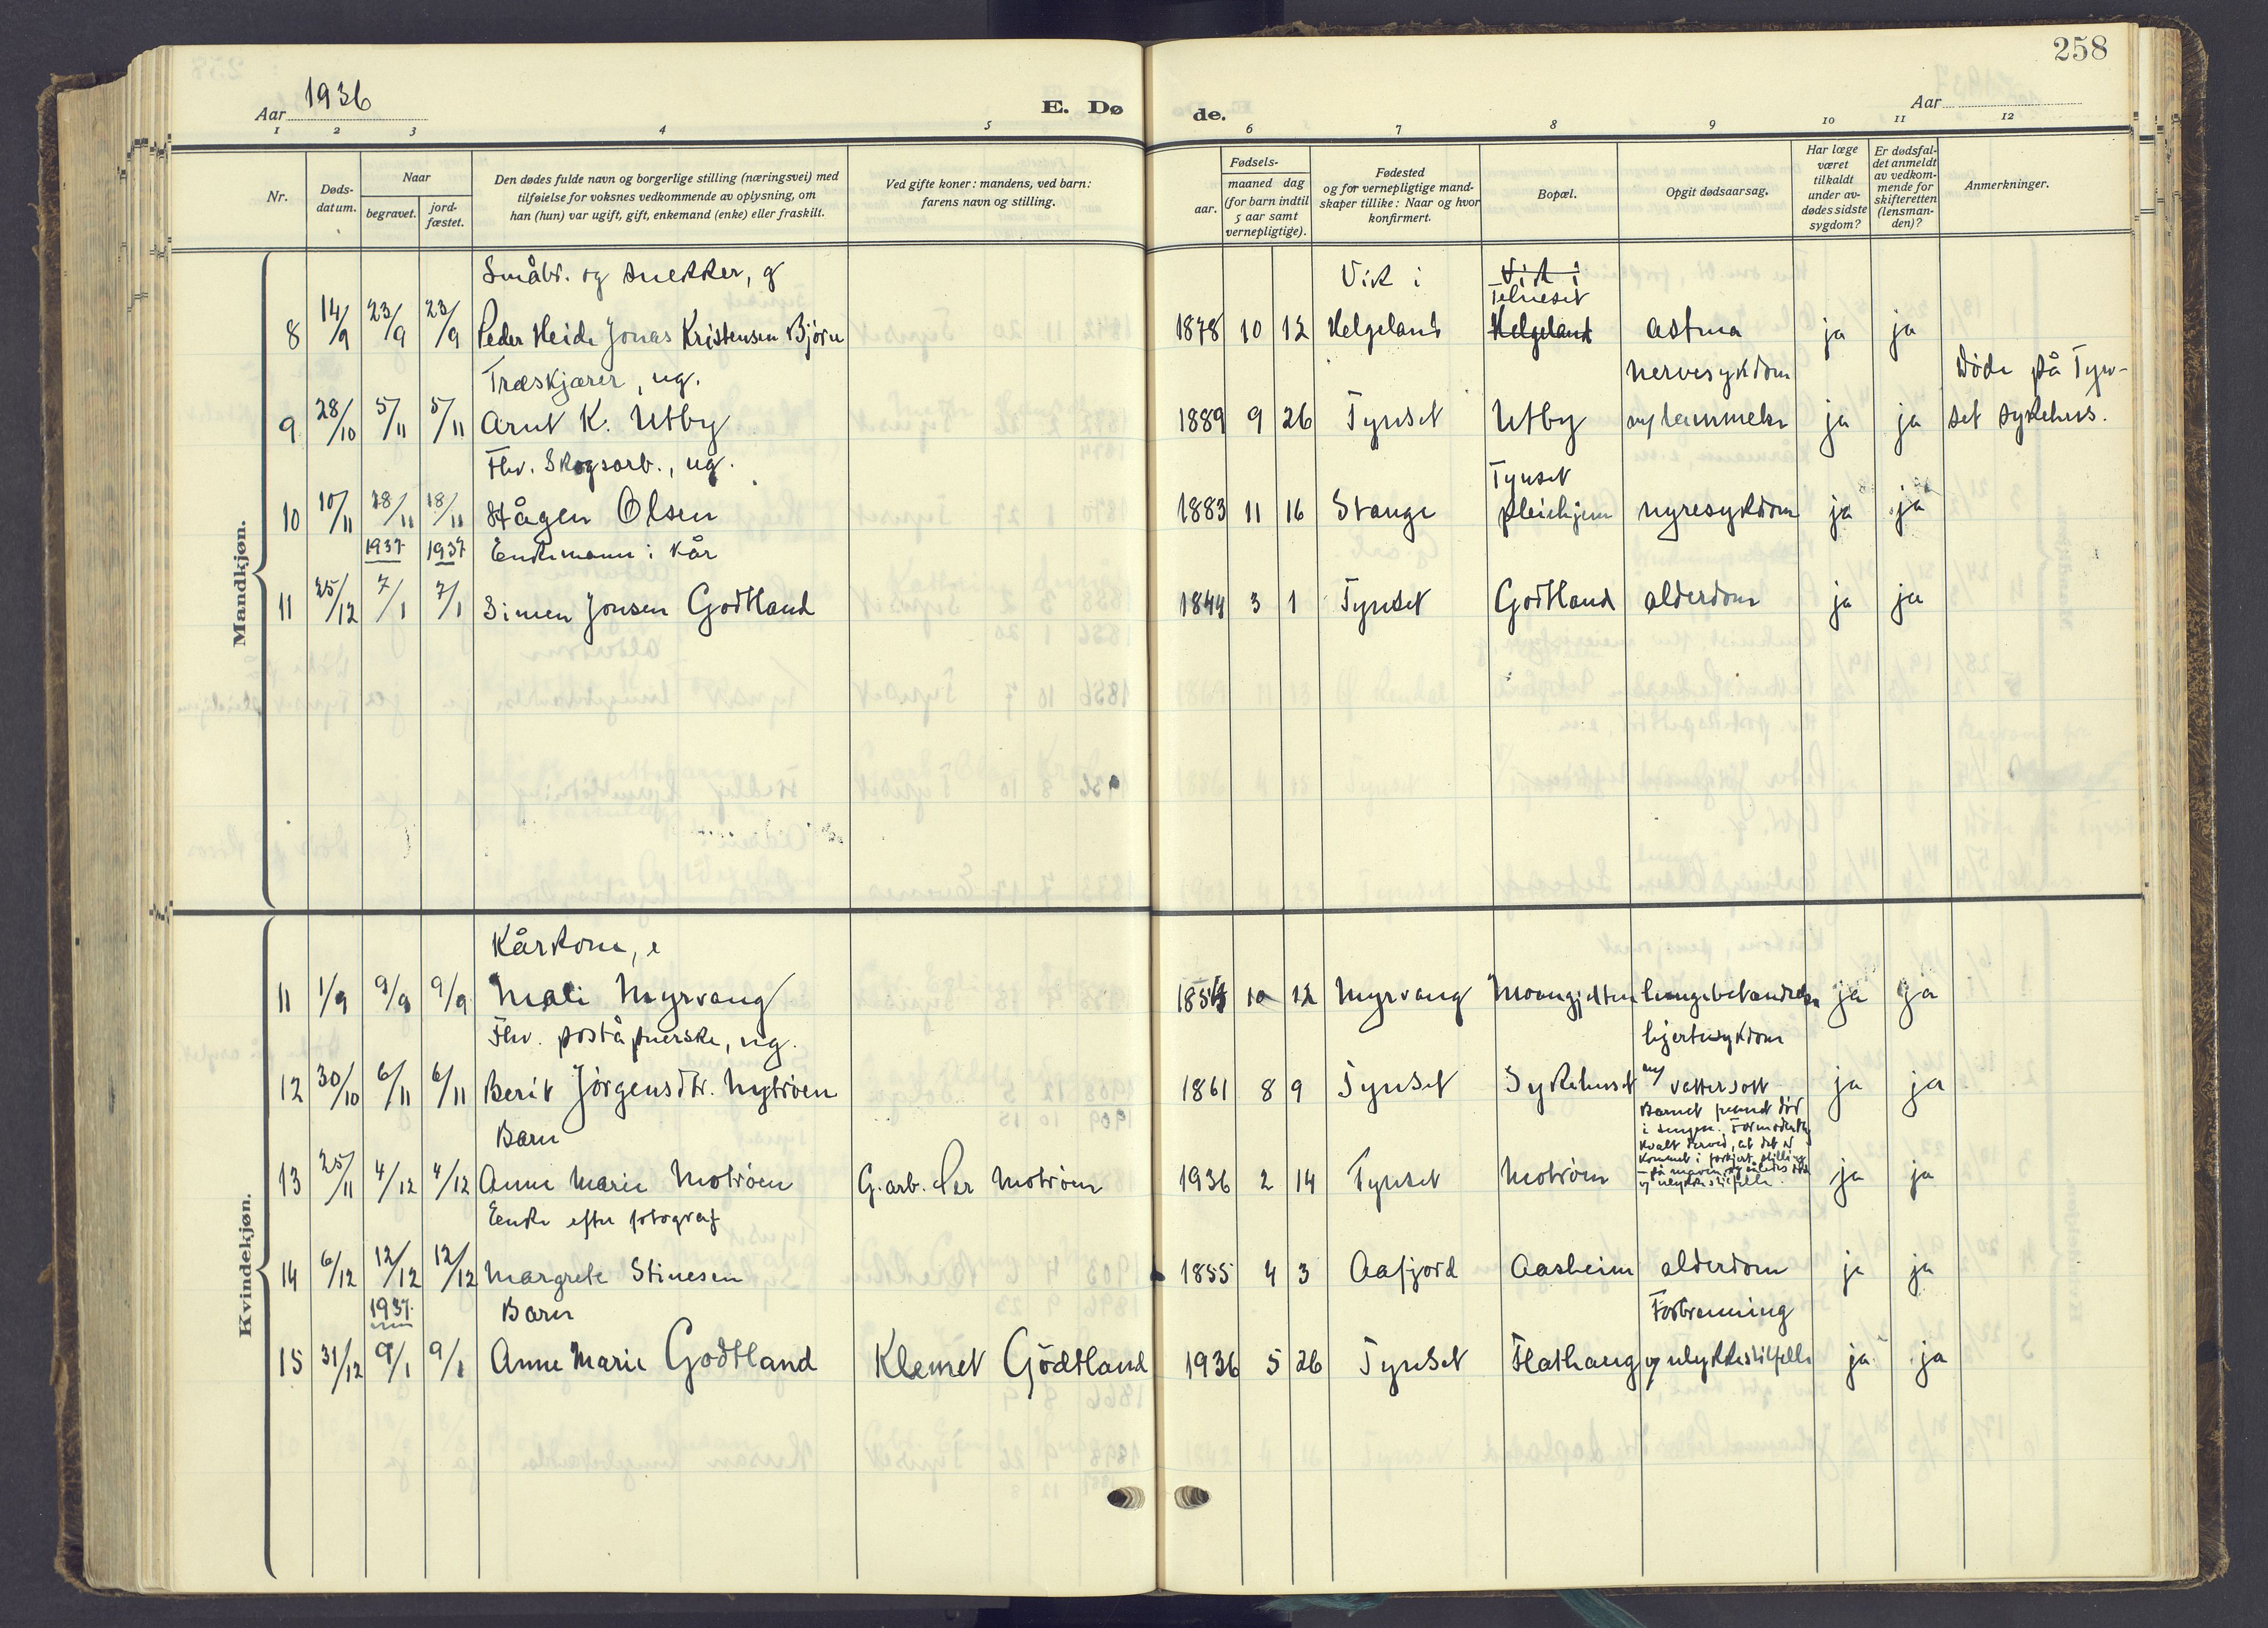 258
Aar 1936
E. Dø
de.
Aar
1 2 3 4 5
6 7 8 9 10 11 12
Nr.
Døds-
datum.
Naar
begravet.
jord-
fæstet.
Den dødes fulde navn og borgerlige stilling (næringsvei) med
tilføielse for voksnes vedkommende av oplysning, om
han (hun) var ugift, gift, enkemand (enke) eller fraskilt.
Ved gifte koner: mandens, ved barn:
farens navn og stilling.
Fødsels-
aar.
maaned dag
(for barn indtil
5 aar samt
vernepligtige).
Fødested
og for vernepligtige mand-
skaper tillike: Naar og hvor
konfirmert.
Bopæl.
Opgit dødsaarsag.
Har læge
været
tilkaldt
under av-
dødes sidste
sygdom?
Er dødsfal-
det anmeldt
av vedkom-
mende for
skifteretten
(lensman-
den)?
Anmerkninger.
Mandkjøn.
Småbr. og snekker, g Vik i Vik i
Telneset
8 14/9 23/9 23/9 Peder Heide Jonas Kristensen Bjørn 1878 10 12 Helgeland Helgeland astma ja ja
Træskjærer, ug. nervesykdom Døde på Tyn-
9 28/10 5/11 5/11 Arnt K. Utby 1889 9 26 Tynset Utby m/ lammelse ja ja set sykehus.
Fhv. Skogsarb., ug. Tynset
10 10/11 18/11 18/11 Hågen Olsen 1883 11 16 Stange pleiehjem nyresykdom ja ja
1937 1937 Enkemann i kår
11 25/12 7/1 7/1 Simen Jonsen Godtland 1844 3 1 Tynset Godtland alderdom ja ja
Kvindekjøn.
Kårkone, e
11 1/9 9/9 9/9 Mali Myrvang 10 12 Myrvang Moangjelten lungebetændelse ja ja
Fhv. poståpnerske, ug. hjertesykdom
12 30/10 6/11 6/11 Berit Jörgensdtr. Nytröen 1861 8 9 Tynset Sykehuset m/ vattersott ja ja
Barn
Barnet funnet död
i sengen. Formodentlig
kvalt derved, at det er
kommet i forkjert stilling
— på maven, og således död
v/ ulykkestilfelle.
13 25/11 4/12 4/12 Anne Marie Motröen G. arb. Per Motröen 1936 2 14 Tynset Motröen ja ja
Enke efter fotograf
14 6/12 12/12 12/12 Margrete Stinesen 1855 4 3 Aafjord Aasheim alderdom ja ja
1937. Barn Forbrenning
15 31/12 9/1 9/1 Anne Marie Godtland Klemet Godtland 1936 5 26 Tynset Flathaug v/ ulykkestilfelle ja ja